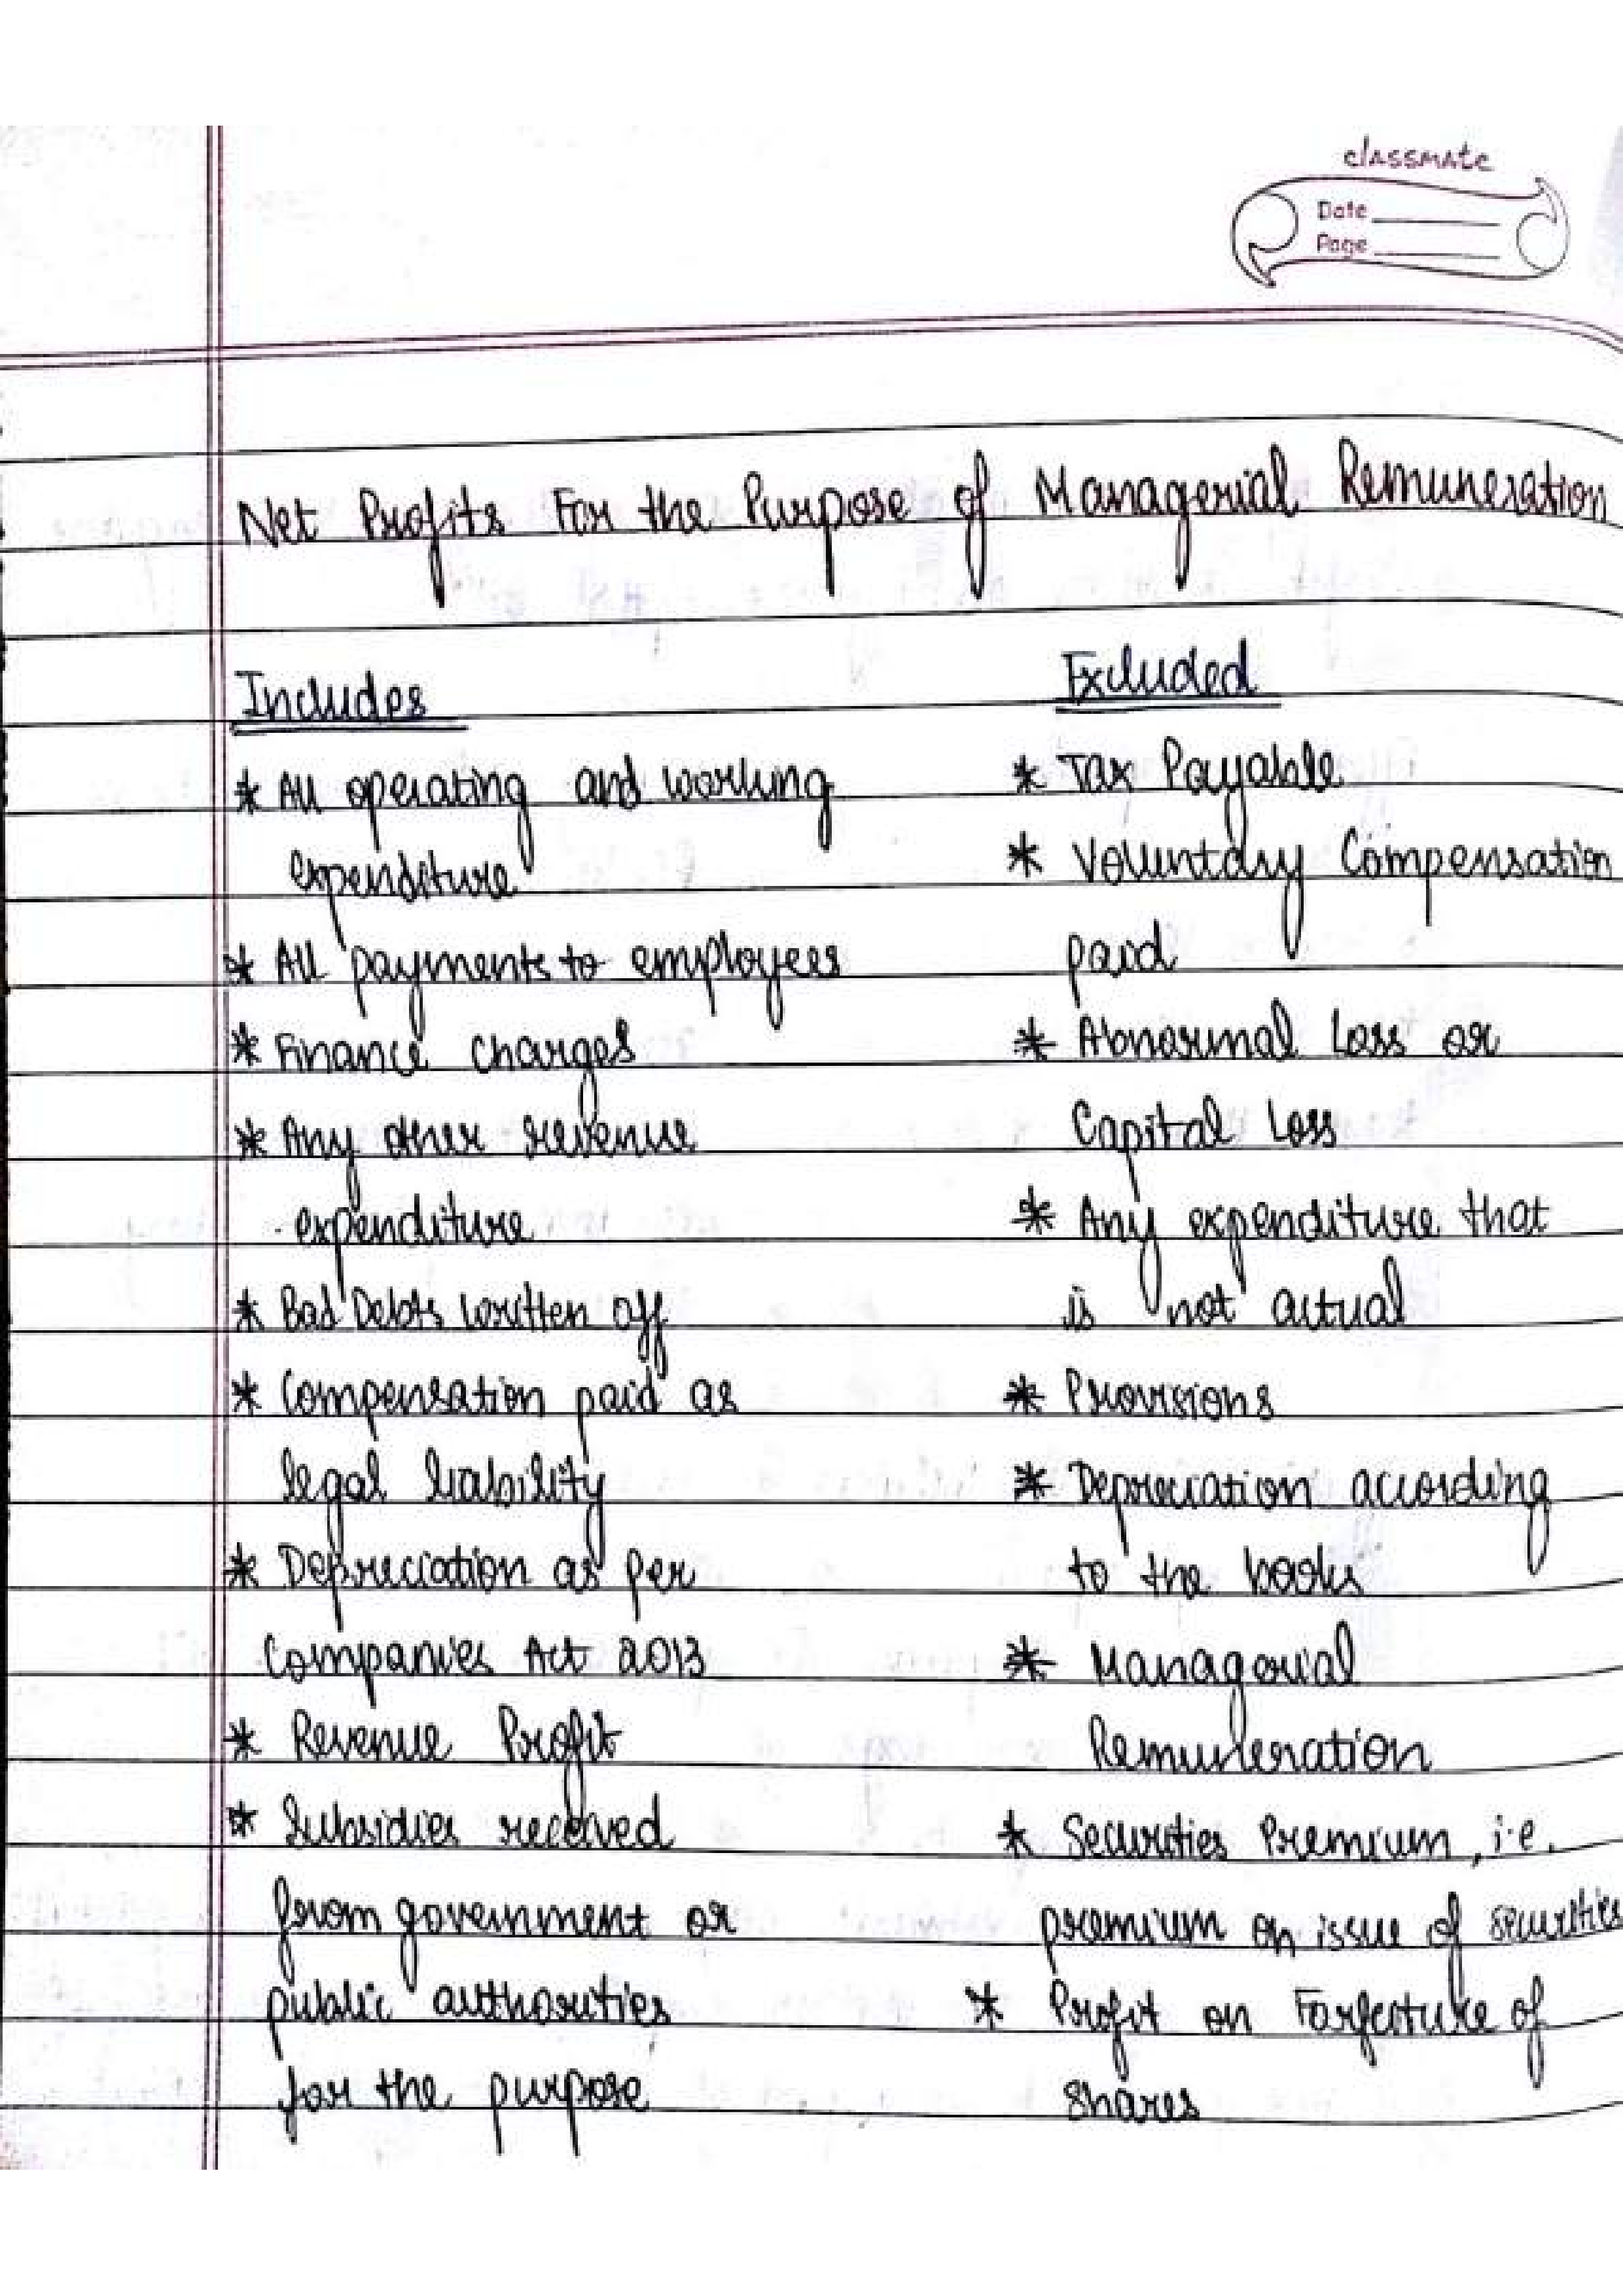 classmate
Date
Page
Net Profits For the Purpose of Managerial Remuneration
Includes
* All operating and working
expenditure
* All payments to employees
* Finance charges
* Any other revenue
expenditure
* Bad Debts written off
* Compensation paid as
legal liability
* Depreciation as per
Companies Act 2013
* Revenue Profit
* Subsidies received
from government or
public authorities
for the purpose
Excluded
* Tax Payable
* Voluntary Compensation
paid
* Abnormal Loss or
Capital Loss
* Any expenditure that
is not actual
* Provisions
* Depreciation according
to the books
* Managerial
Remuneration
* Securities Premium, i.e.
premium on issue of securities
* Profit on Forfeiture of
shares